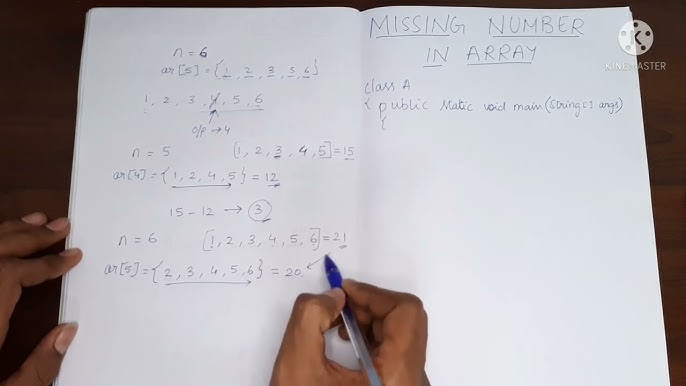 n = 6
ar[5] = {1, 2, 3, 5, 6}
1, 2, 3, 4, 5, 6
O/P → 4
n = 5 [1, 2, 3, 4, 5] = 15
ar[4] = {1, 2, 4, 5} = 12
15 - 12 → 3
n = 6 [1, 2, 3, 4, 5, 6] = 21
ar[5] = {2, 3, 4, 5, 6} = 20
MISSING NUMBER
IN ARRAY
class A
{ public static void main(String[] args)
{
KINEMASTER